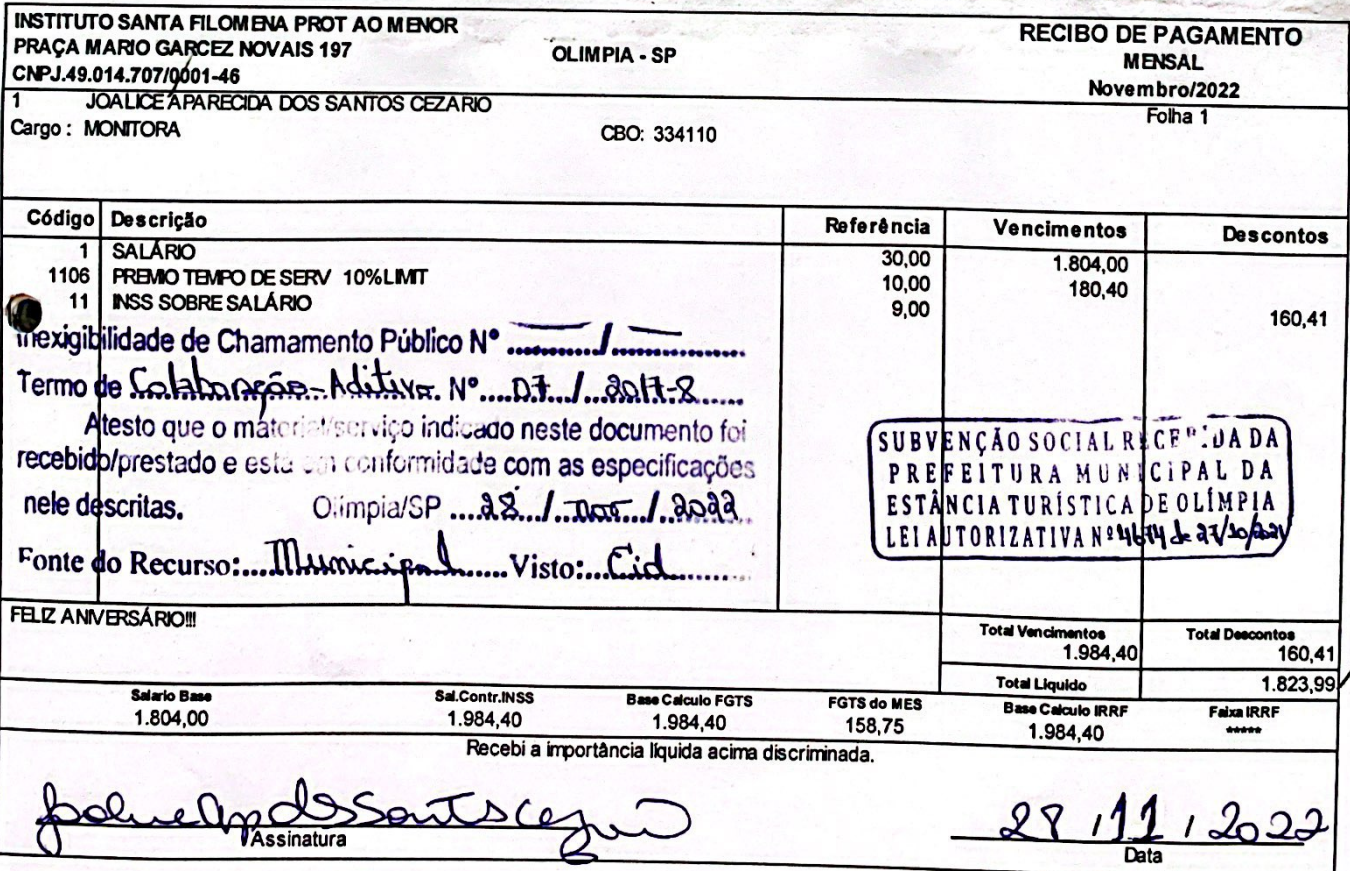 INSTITUTO SANTA FILOMENA PROT AO MENOR
PRAÇA MARIO GARCEZ NOVAIS 197
OLIMPIA - SP
CNPJ.49.014.707/0001-46
RECIBO DE PAGAMENTO
MENSAL
Novembro/2022
1 JOALICE APARECIDA DOS SANTOS CEZARIO
Folha 1
Cargo : MONITORA CBO: 334110
Código Descrição Referência Vencimentos Descontos
1 SALÁRIO 30,00 1.804,00
1106 PREMIO TEMPO DE SERV 10%LIMIT 10,00 180,40
11 INSS SOBRE SALÁRIO 9,00 160,41
Inexigibilidade de Chamamento Público Nº ___/___
Termo de Colaboração-Aditivo. Nº....07.../...2017-8......
Atesto que o material/serviço indicado neste documento foi
recebido/prestado e está em conformidade com as especificações
nele descritas. Olímpia/SP ....28.../...nov.../..2022
Fonte do Recurso:....Municipal......Visto:...Cid........
SUBVENÇÃO SOCIAL RECEBIDA DA
PREFEITURA MUNICIPAL DA
ESTÂNCIA TURÍSTICA DE OLÍMPIA
LEI AUTORIZATIVA Nº 4674 de 27/10/2021
FELIZ ANIVERSÁRIO!!!
Total Vencimentos Total Descontos
1.984,40 160,41
Total Liquido 1.823,99
Salario Base Sal.Contr.INSS Base Calculo FGTS FGTS do MES Base Calculo IRRF Faixa IRRF
1.804,00 1.984,40 1.984,40 158,75 1.984,40 *****
Recebi a importância líquida acima discriminada.
28 / 11 / 2022
Assinatura Data